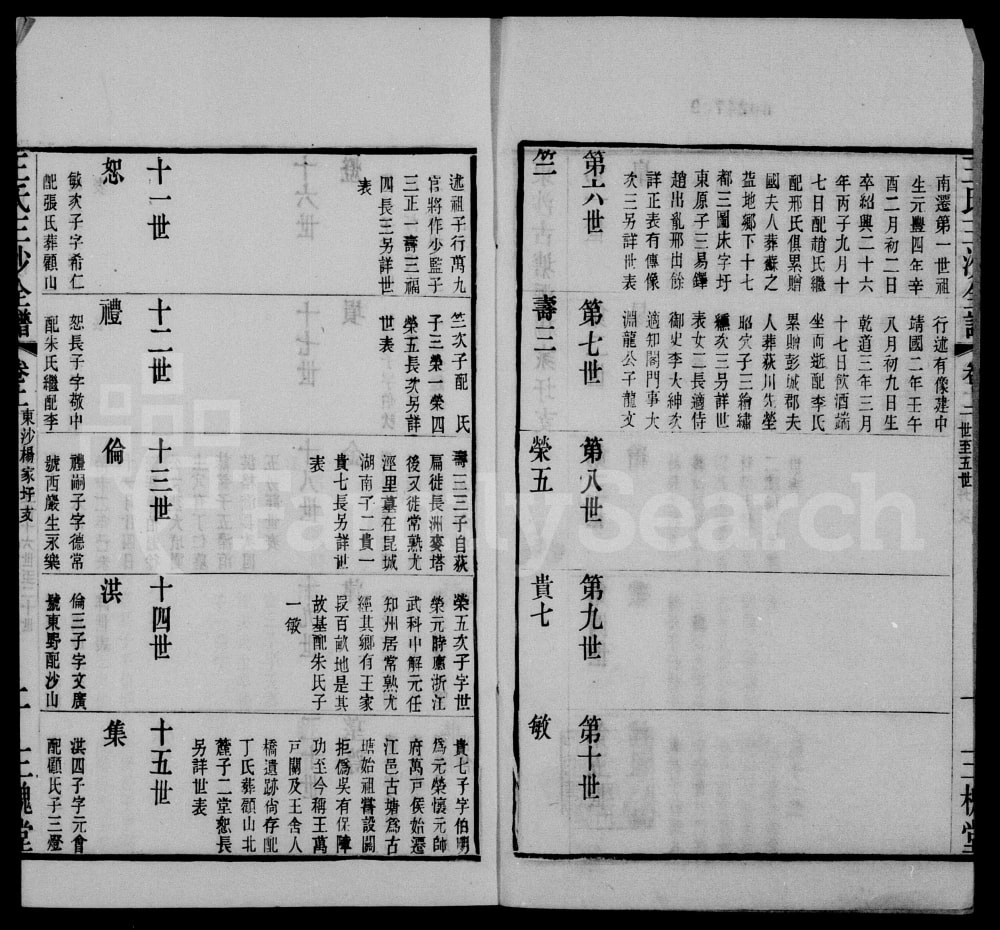 王氏三沙全譜
卷二
一世至五世
一
三槐堂
南遷第一世祖
生元豐四年辛
酉二月初二日
卒紹興二十六
年丙子九月十
七日配趙氏繼
配邢氏俱累贈
國夫人葬蘇之
盐地鄉下十七
都三圖床字圩
東原子三易鐸
趙出亂邢出餘
詳正表有傳像
次三另詳世表
行述有像建中
靖國二年壬午
八月初九日生
乾道三年三月
十七日飲酒端
坐而逝配李氏
累贈彭城郡夫
人葬荻川先塋
昭穴子三繪繡
纁次三另詳世
表女二長適侍
御史李大紳次
適知閣門事大
淵龍公子龍文
第六世
第七世
第八世
第九世
第十世
竺
壽三
榮五
貴七
敏
述祖子行萬九
官將作少監子
三正一壽三福
四長三另詳世
表
竺次子配　氏
子三榮一榮四
榮五長次另詳
世表
壽三三子自荻
扁徙長洲麥塔
後又徙常熟尤
涇里墓在昆城
湖南子二貴一
貴七長另詳世
表
榮五次子字世
榮元時應浙江
武科中解元任
知州居常熟尤
經其鄉有王家
叚百畝地是其
故基配朱氏子
一敏
貴七子字伯明
為元榮懷元帥
府萬戸侯始遷
江邑古塘為古
塘始祖嘗設閘
拒僞吳有保障
功至今稱王萬
戸閘及王舍人
橋遺跡尙存配
丁氏葬顧山北
麓子二堂恕長
另詳世表
十一世
十二世
十三世
十四世
十五世
恕
禮
倫
洪
集
敏次子字希仁
配張氏葬顧山
恕長子字敬中
配朱氏繼配李
禮嗣子字德常
號西巖生永樂
倫三子字文廣
號東野配沙山
洪四子字元會
配顧氏子三燈
王氏三沙全譜
卷二
東沙楊家圩支
十六世至二十世
一
三槐堂